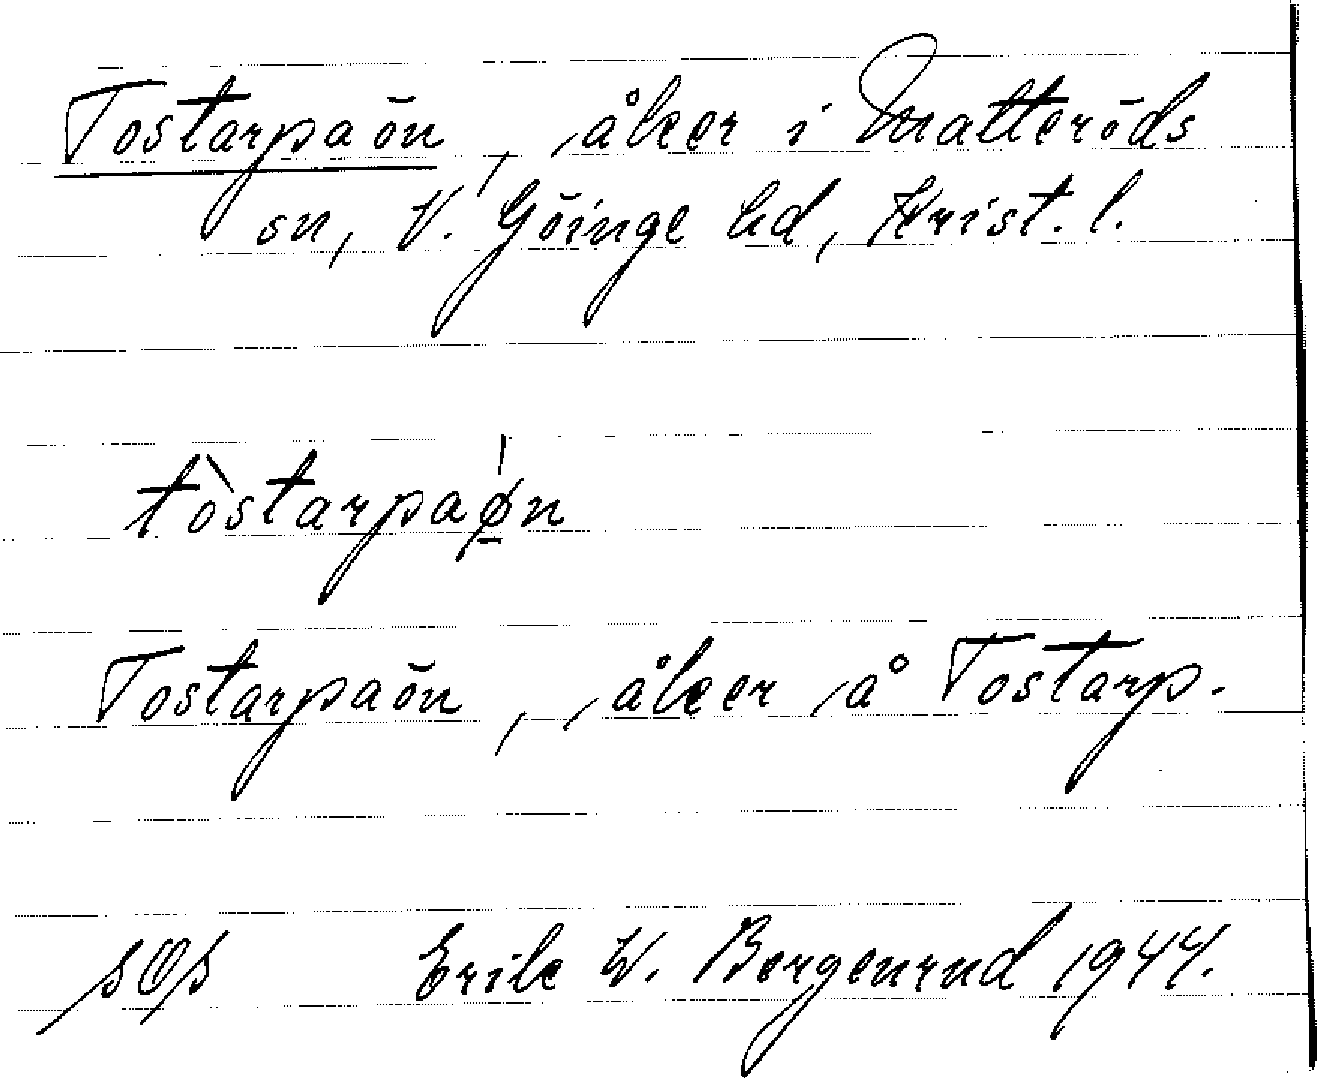 Tostarpaön, åker i Matteröds
sn, V. Göinge hd, Krist. l.
tòstarpaǿ̱n
Tostarpaön, åker å Tostarp.
Erik W. Bergenrud 1944.